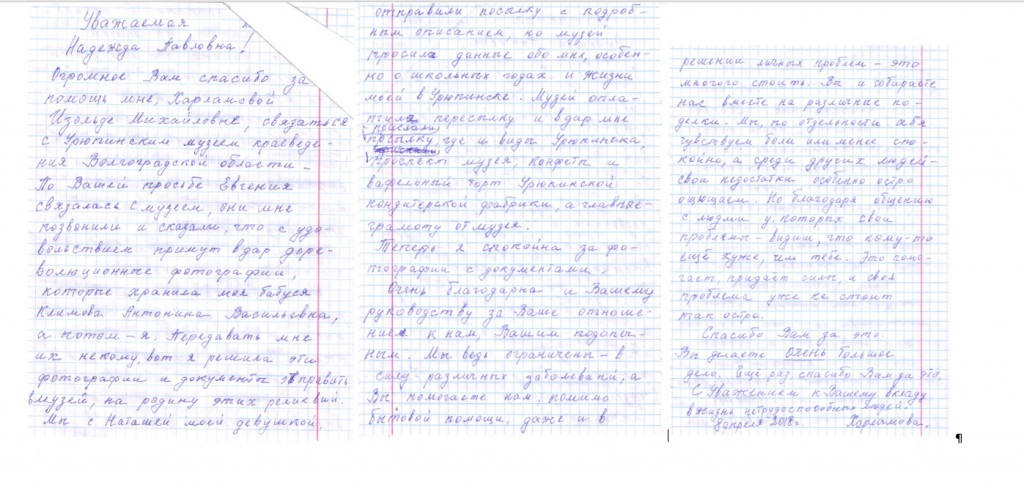 Уважаемая
Надежда Павловна!
Огромное Вам спасибо за
помощь мне, Харламовой
Изольде Михайловне, связаться
с Урюпинским музеем краеведе-
ния Волгоградской области.
По Вашей просьбе Евгения
связалась с музеем, они мне
позвонили и сказали, что с удо-
вольствием примут в дар доре-
волюционные фотографии,
которые хранила моя бабуся
Климова Антонина Васильевна,
а потом – я. Передавать мне
их некому, вот я решила эти
фотографии и документы отправить
в музей, на родину этих реликвий.
Мы с Наташей моей девушкой.
отправили посылку с подроб-
ным описанием, но музей
просил данные обо мне, особен-
но о школьных годах и жизни
моей в Урюпинске. Музей опла-
тил пересылку и в дар мне
прислали
посылку, где и виды Урюпинска
проспект музея, конфеты и
вафельный торт Урюпинской
кондитерской фабрики, а главное-
грамоту от музея.
Теперь я спокойна за фо-
тографии с документами.
Очень благодарна и Вашему
руководству за Ваше отноше-
ние к нам, Вашим подопеч-
ным. Мы ведь ограничены – в
силу различных заболеваний, а
Вы помогаете нам, помимо
бытовой помощи, даже и в
решении личных проблем – это
многого стоит. Вы и собираете
нас вместе на различные по-
делки. Мы, по отдельности себя
чувствуем боли или менее спо-
койно, а среди других людей –
свои недостатки особенно остро
ощущаем. Но благодаря общению
с людми у, которых свои
проблемы – видим, что кому-то
ещё хуже, чем тебе. Это помо-
гает, придаёт силы и своя
проблема уже не стоит
так остро.
Спасибо Вам за это.
Вы делаете очень большое
дело. Ещё раз спасибо Вам за это.
С Уважением к Вашему вкладу
в жизнь нетрудоспособных людей.
апреля 2018г. Харламова.
¶